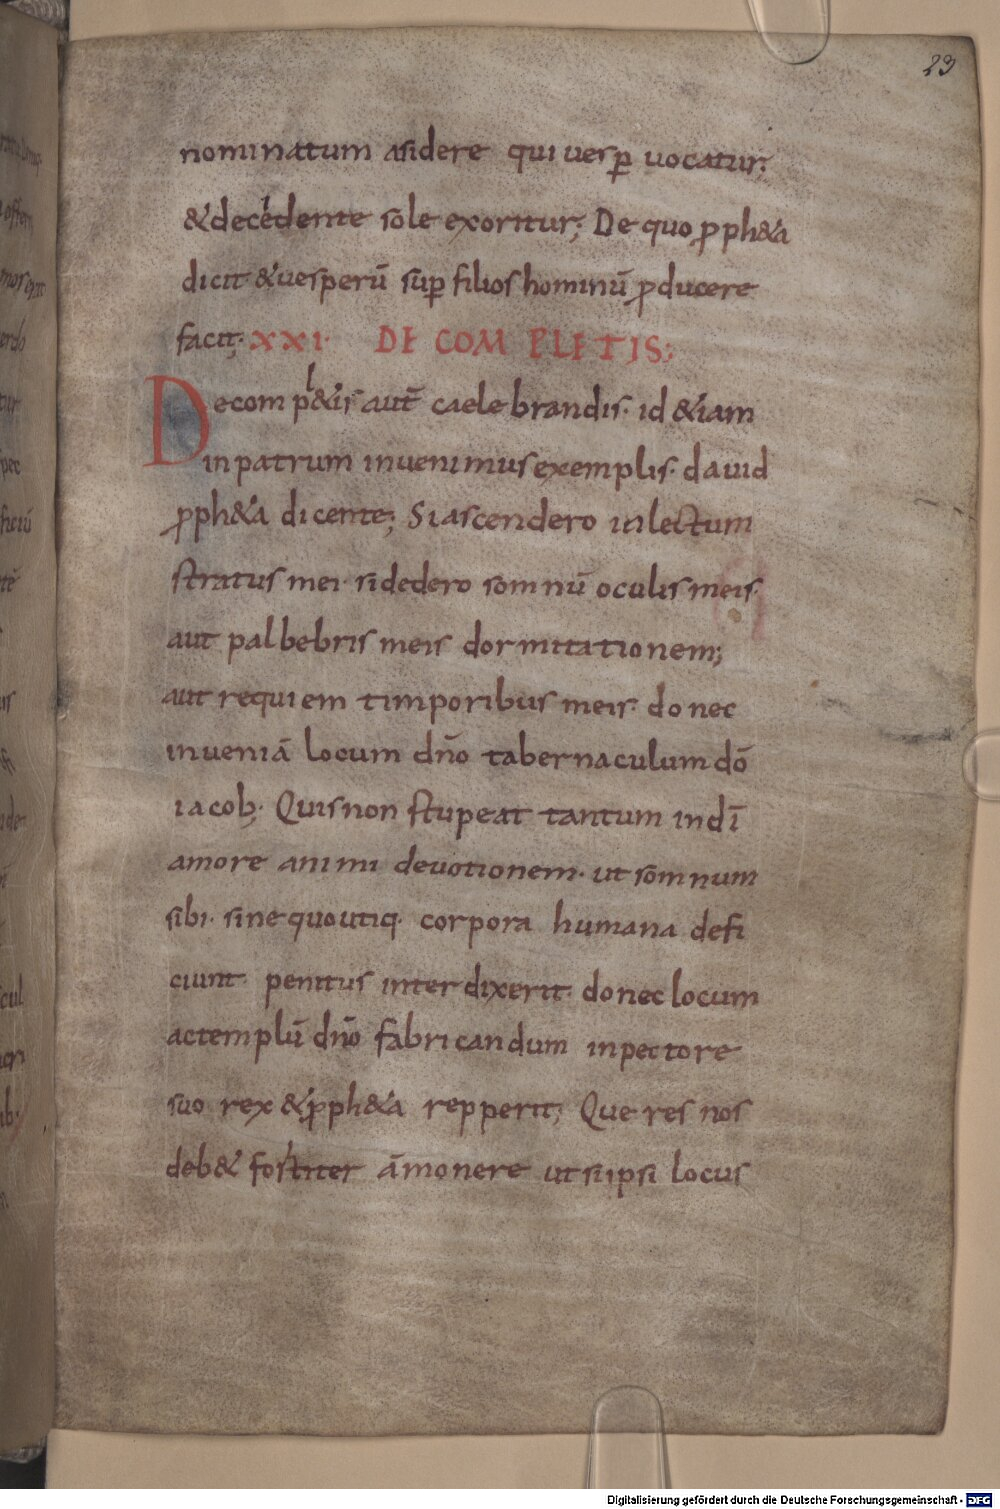 23
nominatum asidere qui vesꝑ vocatur;
&decedente sole exoritur; De quo ꝓph&a
dicit &vesperū suꝑ filios hominū ꝓducere
facit; XXI· DE COMPLETIS;
Decompl&is aut̄ caelebrandis· id &iam
inpatrum invenimus exemplis· david
ꝓph&a dicente; Si ascendero inlectum
stratus mei· si dedero somnū oculis meis·
aut palbebris meis dormitationem;
aut requiem timporibus meis· donec
inveniā locum dño tabernaculum dō
iacob; Quis non stupeat tantum indī
amore animi devotionem· ut somnum
sibi· sine quo utiq· corpora humana defi
ciunt· penitus interdixerit· donec locum
actemplū dño fabricandum inpectore
suo rex &ꝓph&a repperit; Que res nos
deb& fortiter āmonere ut si ipsi locus
Digitalisierung gefördert durch die Deutsche Forschungsgemeinschaft - DFG